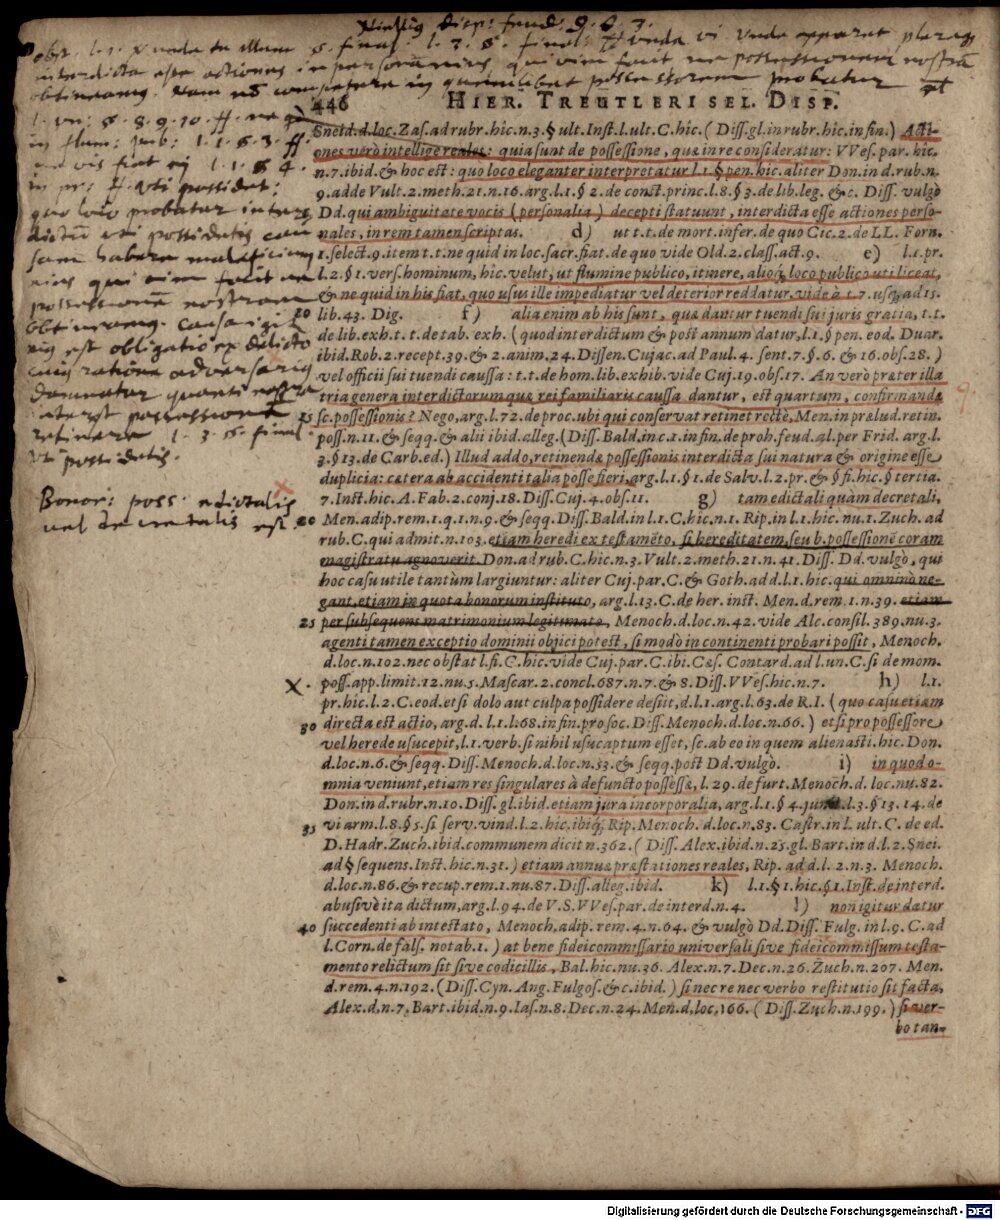 obst. l. 1. unde de illum §. final. l. 3. §. final. ff unde vi. Unde apparet
interdicta esse actiones in personam
obtineamus. Nam possessorem probatur
446 HIER. TREUTLERI SEL. DISP.
Snetd.d.loc.Zas.ad rubr.hic.n.3.§ ult.Inst.l.ult.C.hîc. (Diss.gl.in rubr.hic.in fin.) Acti-
ones verò intellige reales: quia sunt de possessione, quæ in re consideratur: VVes.par.hic.
n.7.ibid.& hoc est: quo loco eleganter interpretatur l.1.§ pen.hic.aliter Don.in d.rub.n.
9.adde Vult.2.meth.21.n.16.arg.l.1.§ 2.de const.princ.l.8.§ 3.de lib.leg.&c. Diss.vulgò
Dd.qui ambiguitate vocis (personalia) decepti statuunt, interdicta esse actiones perso-
nales, in rem tamen scriptas. d) ut t.t.de mort.infer.de quo Cic.2.de LL. Forn.
1.select.9.item t.t.ne quid in loc.sacr.fiat.de quo vide Old.2.class.act.9. e) l.1.pr.
l.2.§ 1.vers.hominum, hic.velut, ut flumine publico, itinere, alioq; loco publico uti liceat,
& ne quid in his fiat, quo usus ille impediatur vel deterior reddatur, vide à t.7.usq; ad 15.
10 lib.43. Dig. f) alia enim ab his sunt, quæ dantur tuendi sui juris gratia, t.t.
de lib.exh.t.t.de tab.exh. (quod interdictum & post annum datur, l.1.§ pen.eod. Duar.
ibid.Rob.2.recept.39.& 2.anim.24.Dissen.Cujac.ad Paul.4.sent.7.§.6.& 16.obs.28.)
vel officii sui tuendi caussa: t.t.de hom.lib.exhib.vide Cuj.19.obs.17. An verò præter illa
tria genera interdictorum quæ rei familiaris caussa dantur, est quartum, confirmandæ
15 sc.possessionis? Nego, arg.l.72.de proc.ubi qui conservat retinet rectè, Men.in prælud.retin.
poss.n.11.& seqq.& alii ibid.alleg.(Diss.Bald.in c.1.in fin.de proh.feud.al.per Frid. arg.l.
3.§ 13.de Carb.ed.) Illud addo, retinendæ possessionis interdicta sui natura & origine esse
duplicia: cætera ab accidenti talia posse fieri, arg.l.1.§ 1.de Salv.l.2.pr.& § fi.hic.§ tertia.
7.Inst.hic.A.Fab.2.conj.18.Diss.Cuj.4.obs.11. g) tam edictali quàm decretali,
20 Men.adip.rem.1.q.1.n.9.& seqq.Diss.Bald.in l.1.C.hic.n.1. Rip.in l.1.hic.nu.1.Zuch.ad
rub.C.qui admit.n.103.etiam heredi ex testamẽto, si hereditatem, seu b.possessionẽ coram
magistratu agnoverit. Don.ad rub.C.hic.n.3.Vult.2.meth.21.n.41.Diss. Dd.vulgò, qui
hoc casu utile tantùm largiuntur: aliter Cuj.par.C.& Goth.ad d.l.1.hic.qui omnino ne-
gant, etiam in quota bonorum instituto, arg.l.13.C.de her.inst. Men.d.rem.1.n.39. etiam
25 per subsequens matrimonium legitimato, Menoch.d.loc.n.42.vide Alc.consil.389.nu.3.
agenti tamen exceptio dominii objici potest, si modò in continenti probari possit, Menoch.
d.loc.n.102.nec obstat l.fi.C.hic.vide Cuj.par.C.ibi.C&s. Contard.ad l.un.C.si de mom.
poss.app.limit.12.nu.5.Mascar.2.concl.687.n.7.& 8.Diss.VVes.hic.n.7. h) l.1.
pr.hic.l.2.C.eod.etsi dolo aut culpa possidere desiit, d.l.1.arg.l.63.de R.I. (quo casu etiam
30 directa est actio, arg.d.l.1.l.68.in fin.pro soc.Diss.Menoch.d.loc.n.66.) etsi pro possessore
vel herede usucepit, l.1.verb.si nihil usucaptum esset, sc.ab eo in quem alienasti.hic.Don.
d.loc.n.6.& seqq.Diss.Menoch.d.loc.n.53.& seqq.post Dd.vulgò. i) in quod o-
mnia veniunt, etiam res singulares à defuncto possessæ, l.29.de furt.Menoch.d.loc.nu.82.
Don.in d.rubr.n.10.Diss.gl.ibid.etiam jura incorporalia, arg.l.1.§ 4.junct.l.3.§ 13.14.de
35 vi arm.l.8.§ 5.si serv.vind.l.2.hic.ibiq; Rip.Menoch.d.loc.n.83. Castr.in l.ult.C.de ed.
D.Hadr.Zuch.ibid.communem dicit n.362.(Diss.Alex.ibid.n.25.gl.Bart.in d.l.2.Snei.
ad § sequens.Inst.hic.n.31.) etiam annuæ præstationes reales, Rip. ad d.l. 2.n.3. Menoch.
d.loc.n.86.& recup.rem.1.nu.87.Diss.alleg.ibid. k) l.1.§ 1.hic.§ 1.Inst.de interd.
abusivè ita dictum, arg.l.94.de V.S.VVes.par.de interd.n.4. l) non igitur datur
40 succedenti ab intestato, Menoch.adip.rem.4.n.64.& vulgò Dd.Diss.Fulg.in l.9.C.ad
l.Corn.de fals. notab.1.) at bene fideicommissario universali sive fideicommissum testa-
mento relictum sit sive codicillis, Bal.hic.nu.36. Alex.n.7.Dec.n.26.Zuch.n.207. Men.
d.rem.4.n.192.(Diss.Cyn.Ang.Fulgos.&c.ibid.) si nec re nec verbo restitutio sit facta,
Alex.d.n.7.Bart.ibid.n.9.Ias.n.8.Dec.n.24.Men.d.loc.166. (Diss.Zuch.n.199.) si ver-
bo tan-
quo loco probatur inter
dictũ uti possidetis cau
sam habere maleficium
possessionẽ nostram
obtineamus. causa igit
est obligatio ex delicto
cuius ratione adversarius
damnatur quanti nostra
interest possessionẽ
retinere l. 3. §. final.
uti possidetis.
Bonor: poss: edictalis
vel decretalis est.
X.
9.
Digitalisierung gefördert durch die Deutsche Forschungsgemeinschaft - DFG